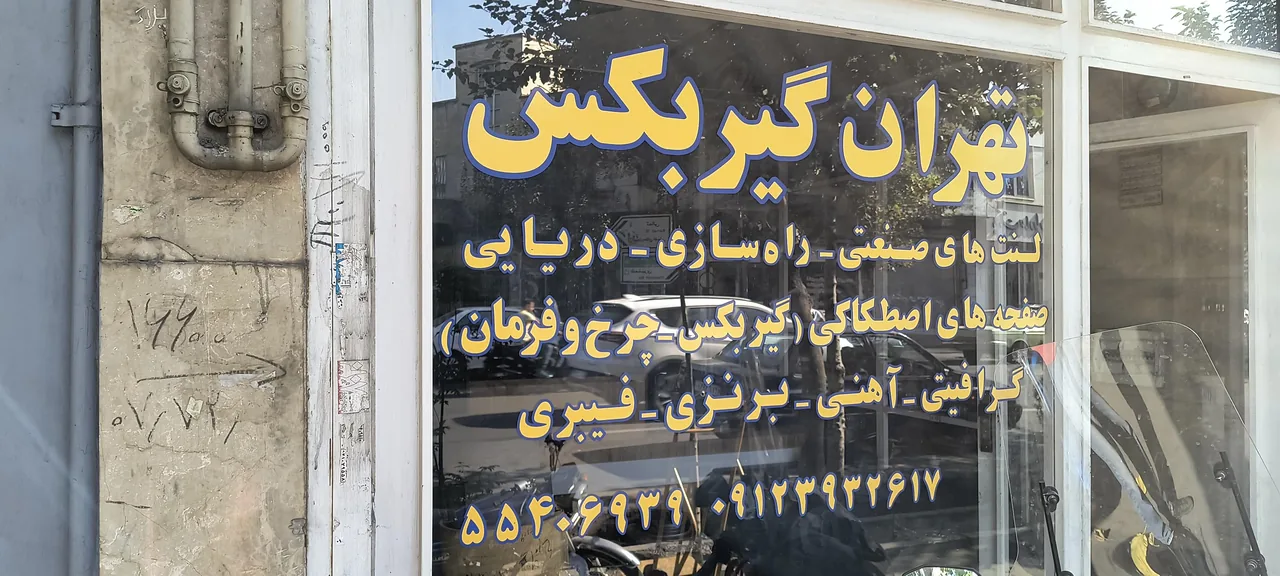 تهران گیربکس
لنت های صنعتی - راه سازی - دریایی
صفحه های اصطکاکی (گیربکس - چرخ و فرمان)
گرافیتی - آهنی - برنزی - فیبری
۰۹۱۲۳۹۳۲۶۱۷ ۵۵۴۰۶۹۳۹